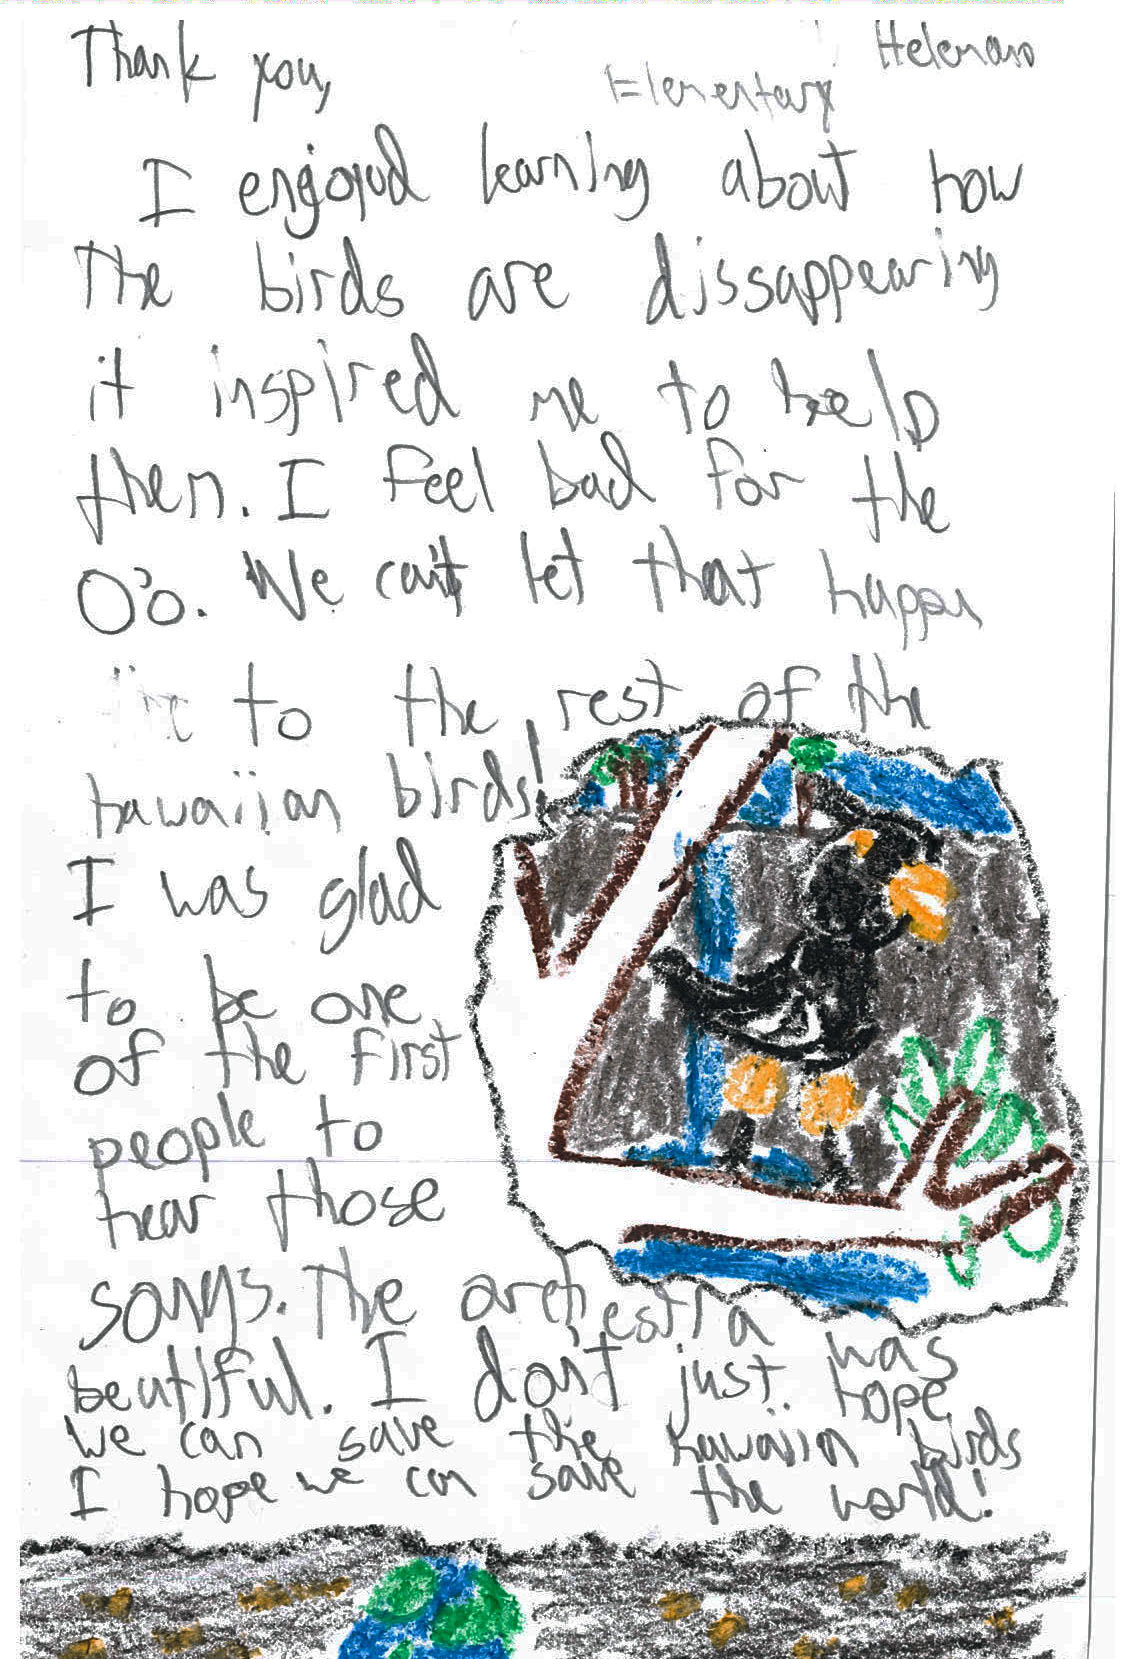 Helemano
Elementary
Thank you,
I engjoyed learning about how
The birds are dissappearing
it inspired me to help
then. I feel bad for the
O'o. We can't let that happen
to the rest of the
hawaiian birds!
I was glad
to be one
of the first
people to
hear those
songs. The orchestra was
beutiful. I don't just hope
we can save the hawaiin birds
I hope we can save the world!